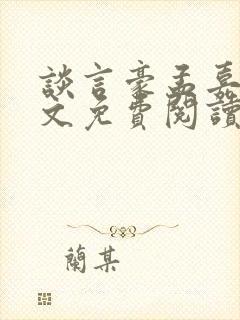 談言豪孟嘉
文免費閱讀
蘭某